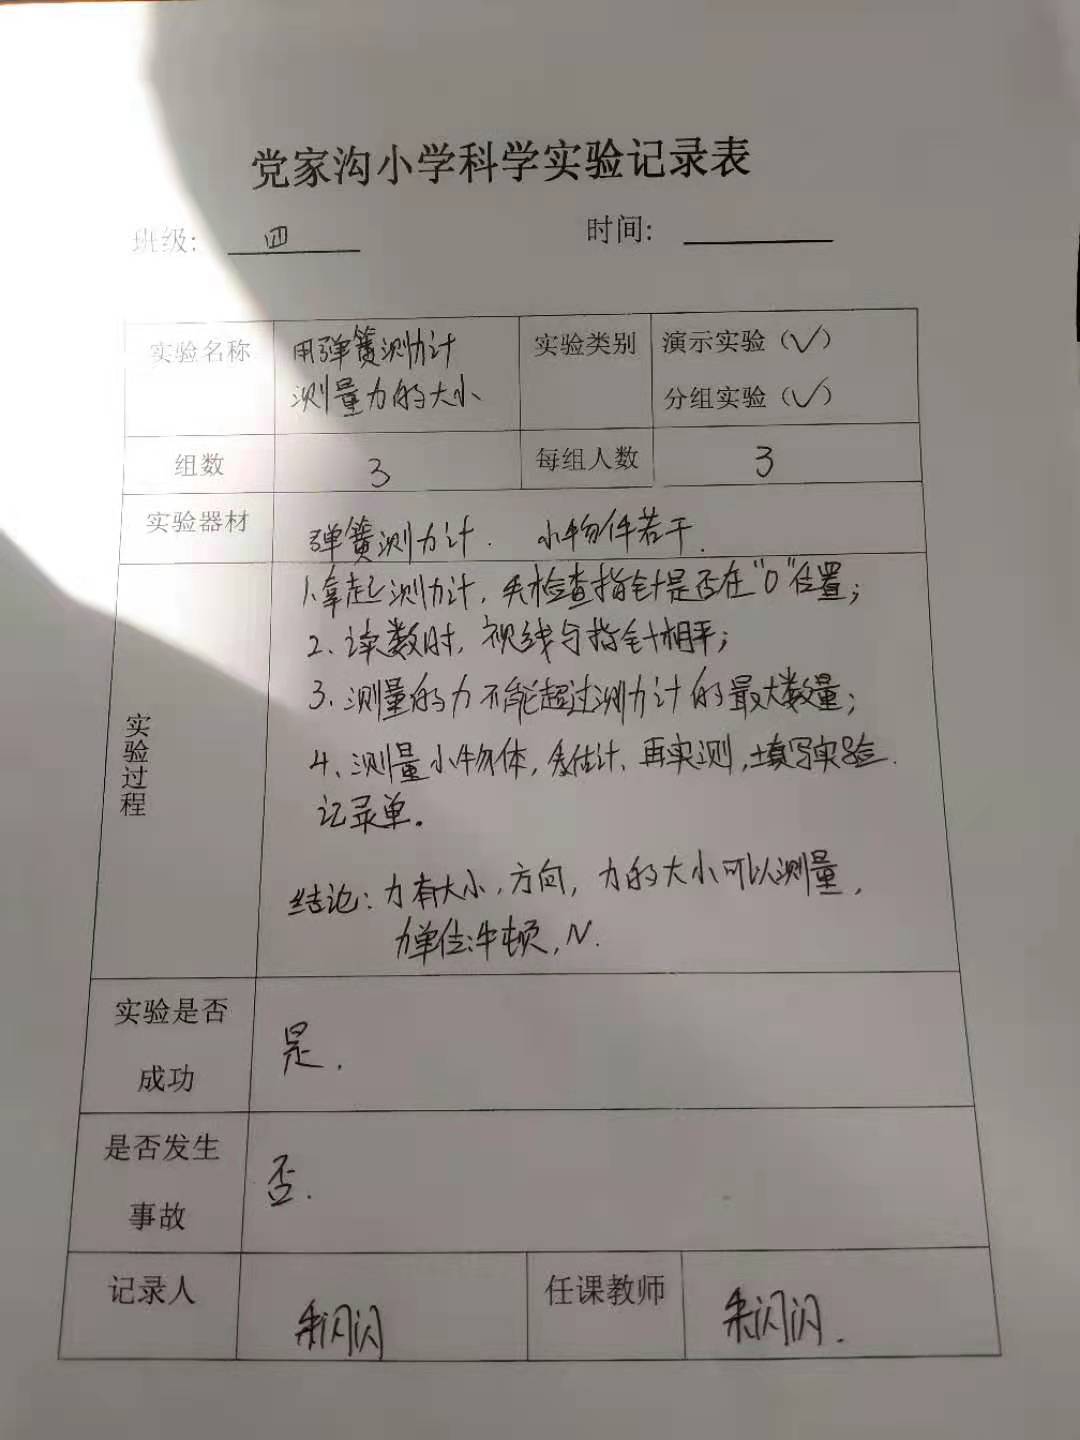 党家沟小学科学实验记录表
班级: 四 时间:
实验名称 用弹簧测力计 实验类别 演示实验（√）
测量力的大小 分组实验（√）
组数 3 每组人数 3
实验器材 弹簧测力计. 小物件若干.
实验过程
1.拿起测力计, 先检查指针是否在“0”位置;
2、读数时, 视线与指针相平;
3、测量的力不能超过测力计的最大数量;
4、测量小物体, 先估计、再实测, 填写实验
记录单。
结论: 力有大小, 方向, 力的大小可以测量,
力单位:牛顿, N.
实验是否 是.
成功
是否发生 否.
事故
记录人 闪闪 任课教师 闪闪.